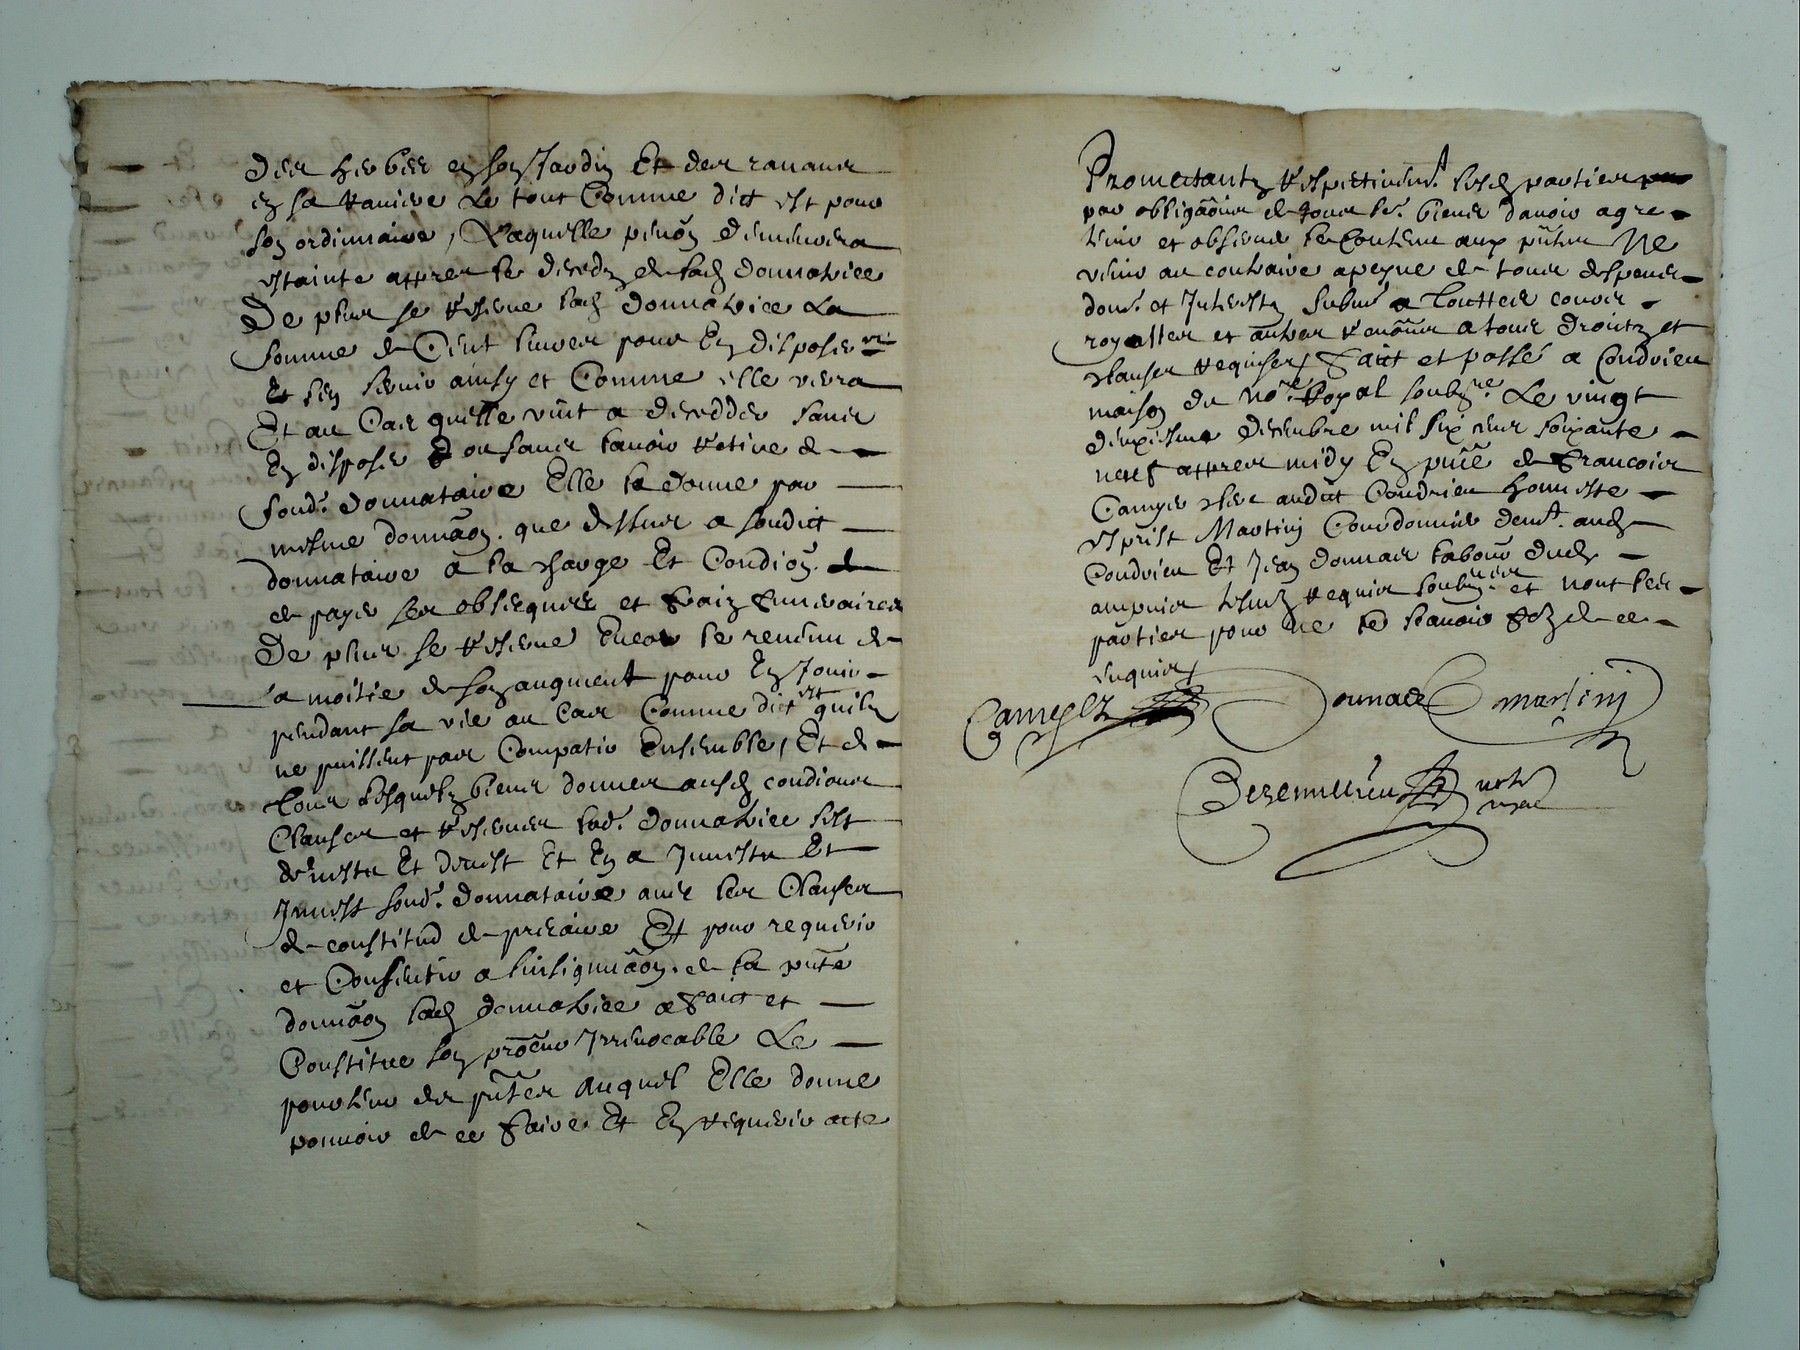 des herbes en son Jardin Et des rananes
en sa raniere Le tout Comme dict est pour
son ordinnaire, Laquelle pen͠on demeurera
estainte appres le deceds de lad donnatrice
De plus se reserve lad donnatrice La
somme de Cent livres pour En disposer
Et sen servir ainsy et Comme elle verra
Et au Cas quelle vint a decedder sans
En disposer ou sans lavoir retire de
sond. donnataire Elle la donne par
mesme donna͠on. que dessus a sondict
donnataire a la charge Et Condi͠on de
de payer ses obseques et fraiz funeraires
De plus se reserve Encor le revenu de
la moitie de son augment pour En Jouir
pendant sa vie au Cas Comme dict est quilz
ne puissent pas Compatir Ensemble, Et de
tous lesquelz biens donnes ausd condi͠ons
Clauses et reserves lad. donnatrice sest
desvestu Et devest Et En a Jnvestu Et
Jnvest sond. donnataire avec les Clauses
de constitud de precaire Et pour requerir
et Consentir a linsignua͠on. de la pn͠te
donna͠on lad donnatrice a faict et
Constitue son proc͠eur Jrrevocable Le
porteur des pn͠tes auquel Elle donne
pouvoir de ce faire Et En requerir acte
Promettantz respectivem.t lesd parties
par obliga͠ons de tous le.s biens davoir agre
tenir et observer le Contenu aux pn͠tes Ne
venir au contraire a peyne de tous despens
dom.s et Jnterestz submis a touttes cours
royalles et autres renon͠s a tous droitz et
clauses requises, Faict et passé a Condrieu
maison du no.re Royal soubz.ne Le vingt
deuxiesme decembre mil six cens soixante
neuf appres midy En pn͠ce de Francois
Campes clerc audict Condrieu honneste
Esprist Martin Courdonnier dem.t aud
Condrieu Et Jean donnaz labour dud
ampuis tesmz requis soubz.nes et nont les
parties pour ne le scavoir Fez de ce
enquis,
Campez Donnaz E martin
Bezennerieu notre
royal